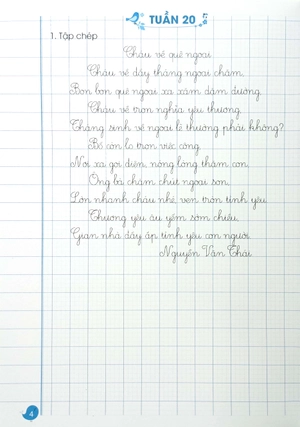 TUẦN 20
1. Tập chép
Cháu về quê ngoại
Cháu về đầy tháng ngoại chăm,
Bon bon quê ngoại xa xăm dặm đường.
Cháu về trọn nghĩa yêu thương,
Tháng sinh về ngoại lẽ thường phải không?
Bố còn lo trọn việc công,
Nơi xa gọi điện, nóng lòng thăm con.
Ông bà chăm chút ngoại son,
Lớn nhanh cháu nhé, vẹn tròn tình yêu.
Thương yêu âu yếm sớm chiều,
Gian nhà đầy ắp tình yêu con người.
Nguyễn Văn Thái
4